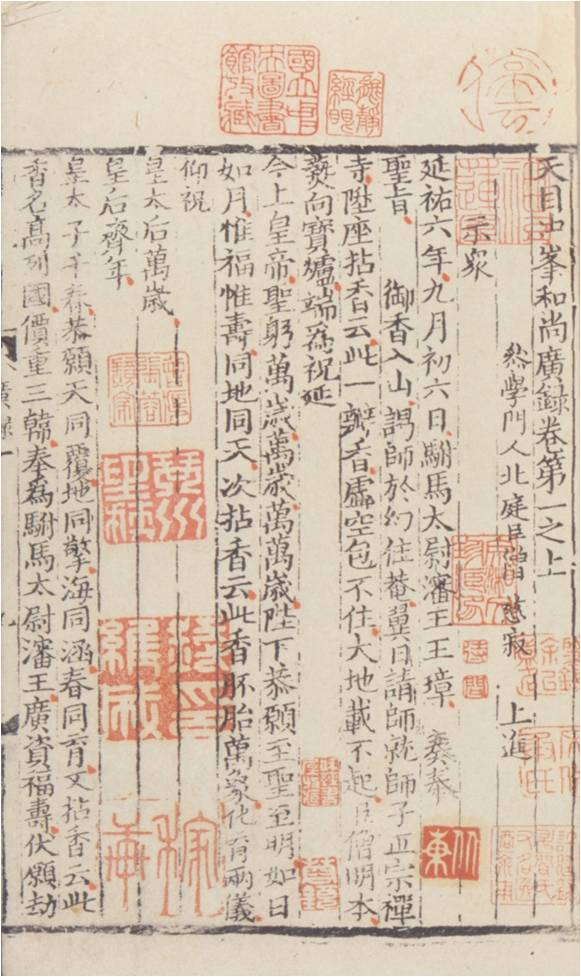 國立中央圖書館收藏
天目中峯和尚廣録卷第一之上
叅學門人北庭臣僧 慈寂 上進
示衆
延祐六年九月初六日駙馬太尉瀋王王璋 奏奉
聖旨 御香入山謁師於幻住菴翼日請師就師子正宗禪
寺陞座拈香云此一瓣香虛空包不住大地載不起臣僧明本
爇向寶爐端爲祝延
今上皇帝聖躬萬歲萬歲萬萬歲陛下恭願至聖至明如日
如月惟福惟壽同地同天次拈香云此香胚胎萬象化育兩儀
仰祝
皇太后萬歲
皇后齊年
皇太子千春恭願天同覆地同擎海同涵春同育又拈香云此
香名髙列國價重三韓奉爲駙馬太尉瀋王廣資福壽伏願劫